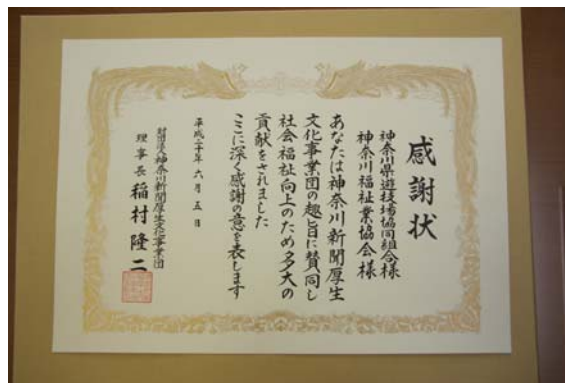 感謝状
神奈川県遊技場協同組合様
神奈川福祉業協会様
あなたは神奈川新聞厚生
文化事業団の趣旨に賛同し
社会福祉向上のため多大の
貢献をされました
ここに深く感謝の意を表します
平成二十年六月五日
財団法人神奈川新聞厚生文化事業団
理事長 稲村隆二